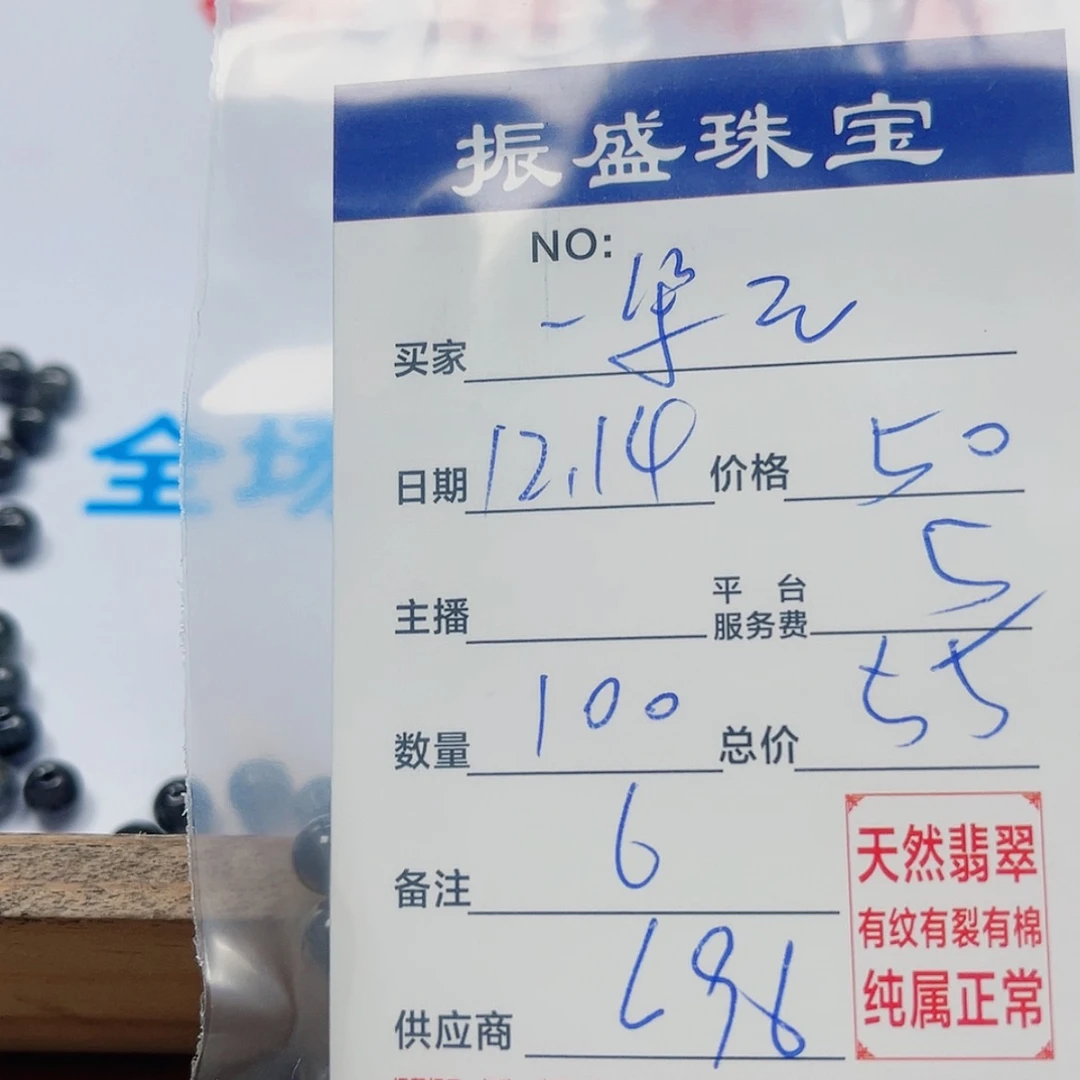 振盛珠宝
NO:
买家
日期 12.14 价格 50
主播 平台服务费 5
数量 100 总价 55
备注 6
供应商
天然翡翠
有纹有裂有棉
纯属正常
全场